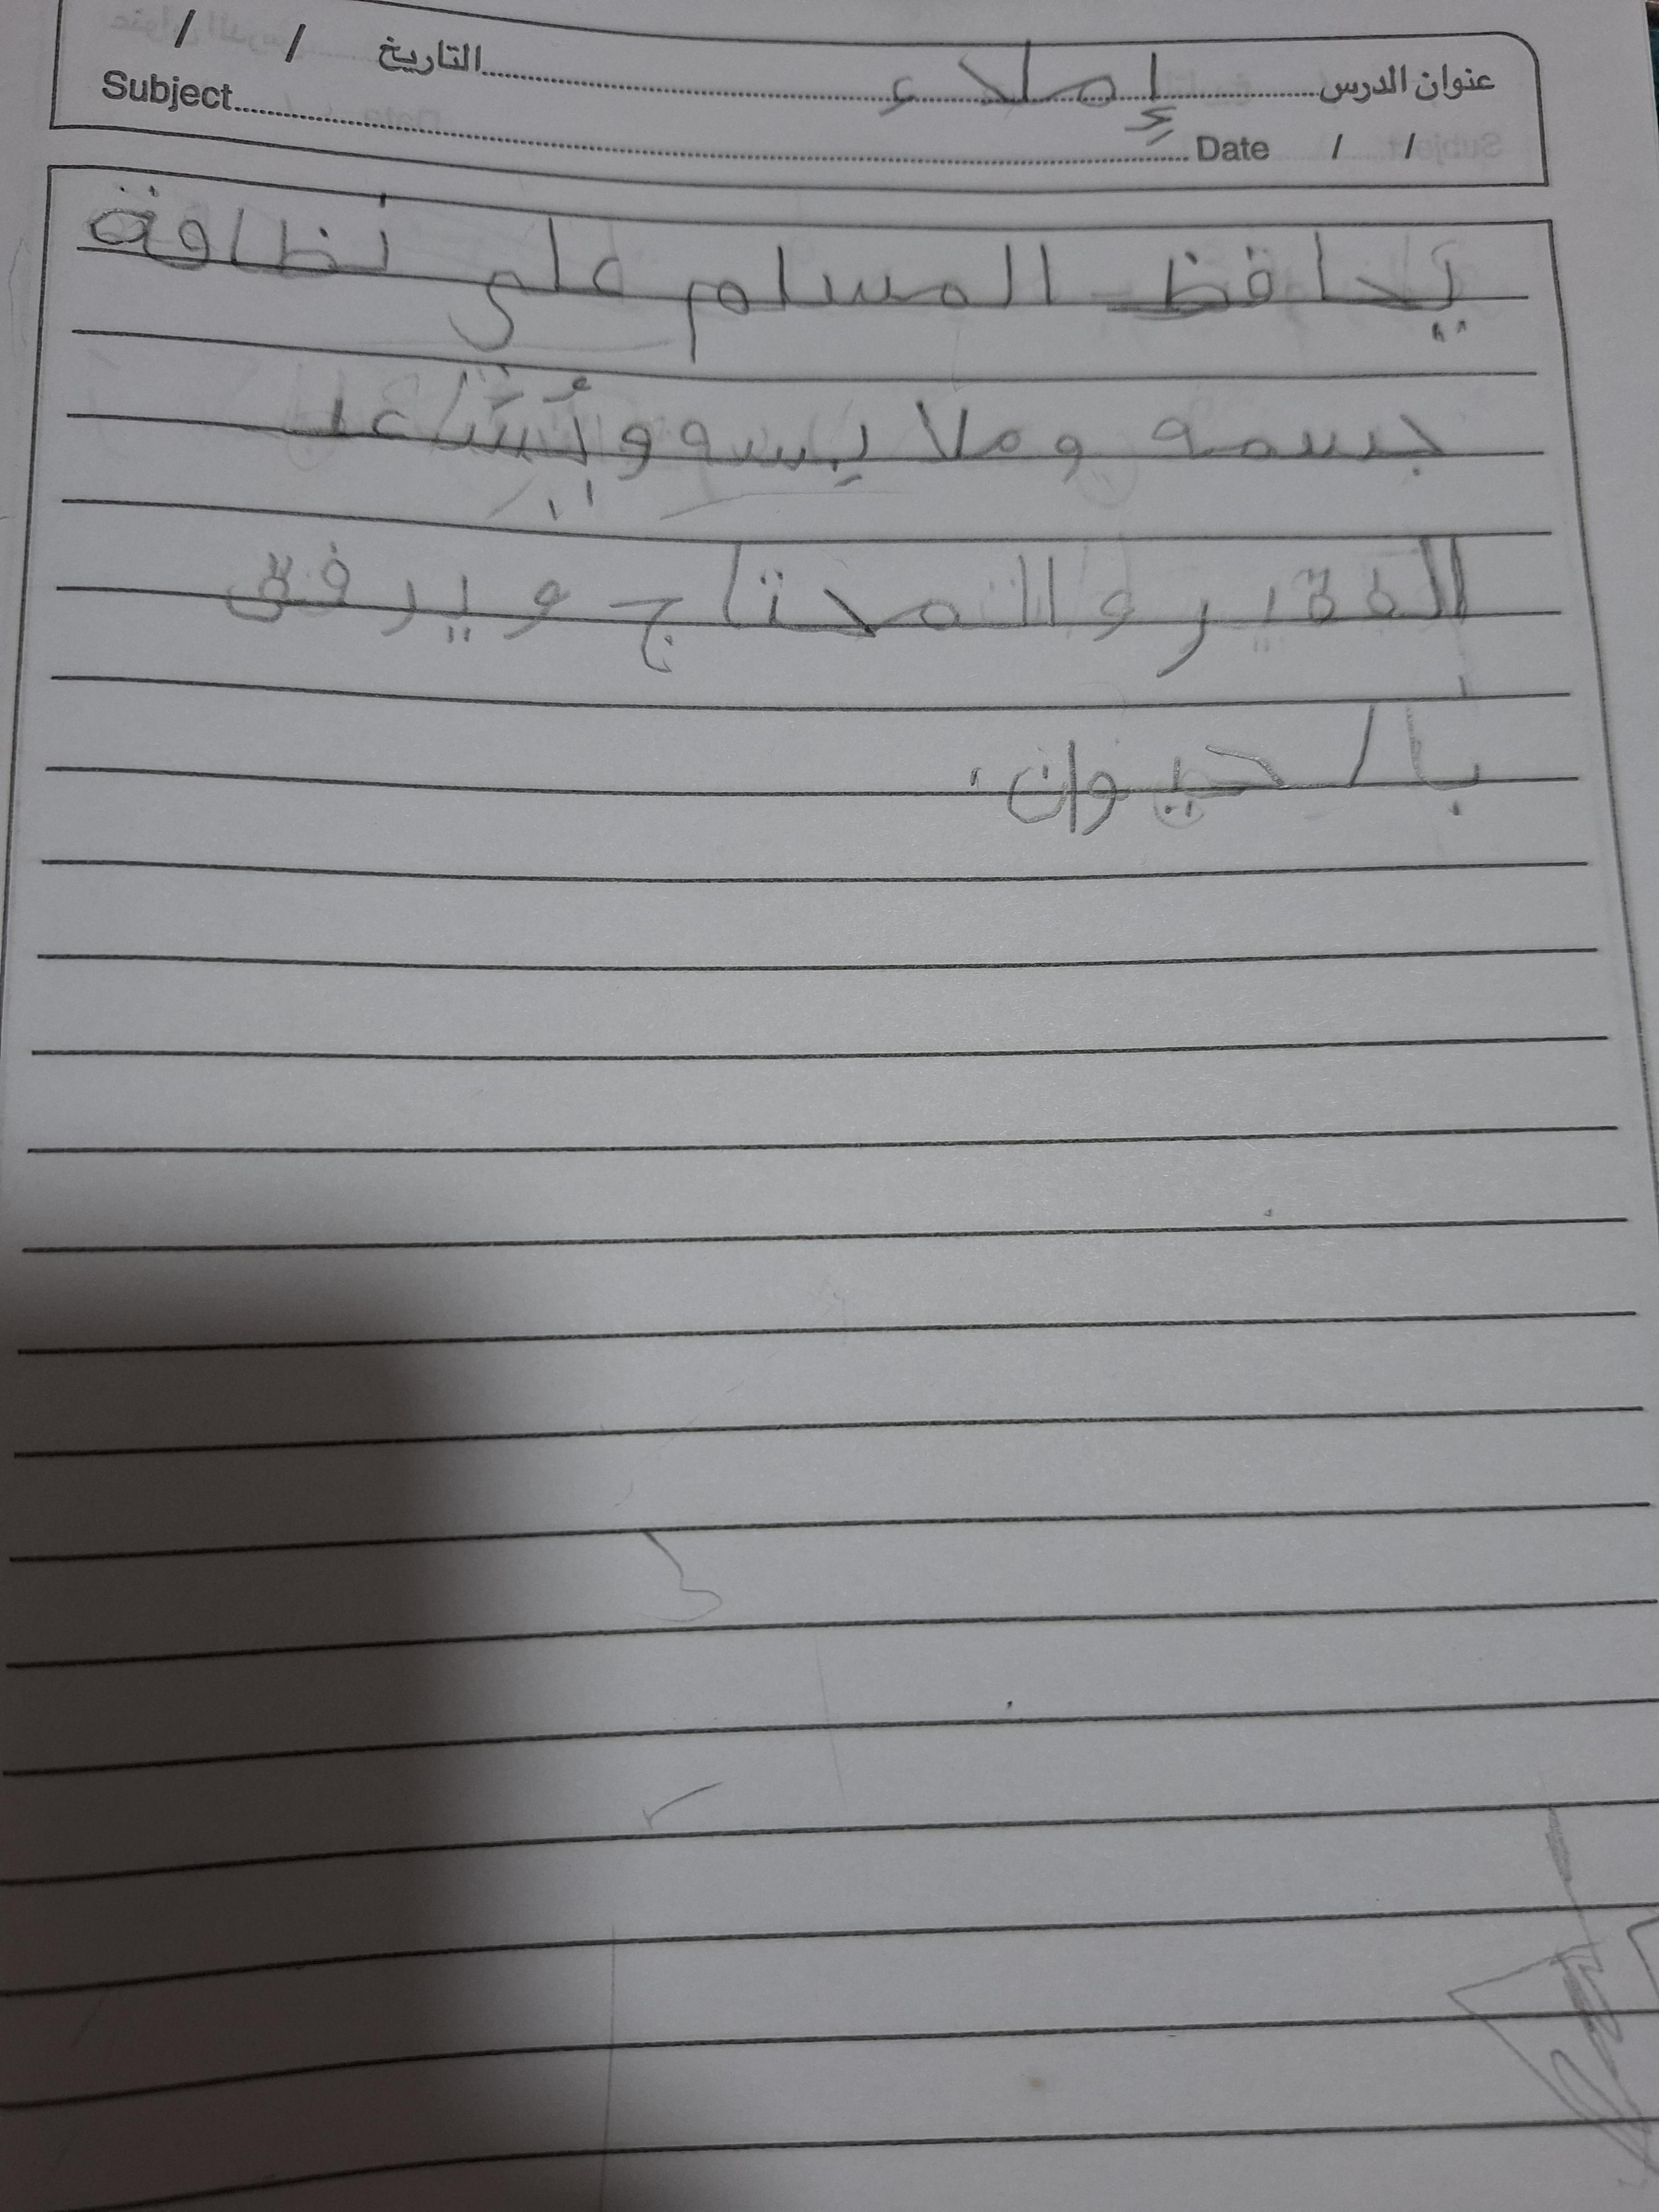 عنوان الدرس إملاء التاريخ / /
Subject Date / /
يحافظ المسلم على نظافة
جسمه وملابسه و
الفقير والمحتاج ويرفق
بالحيوان.